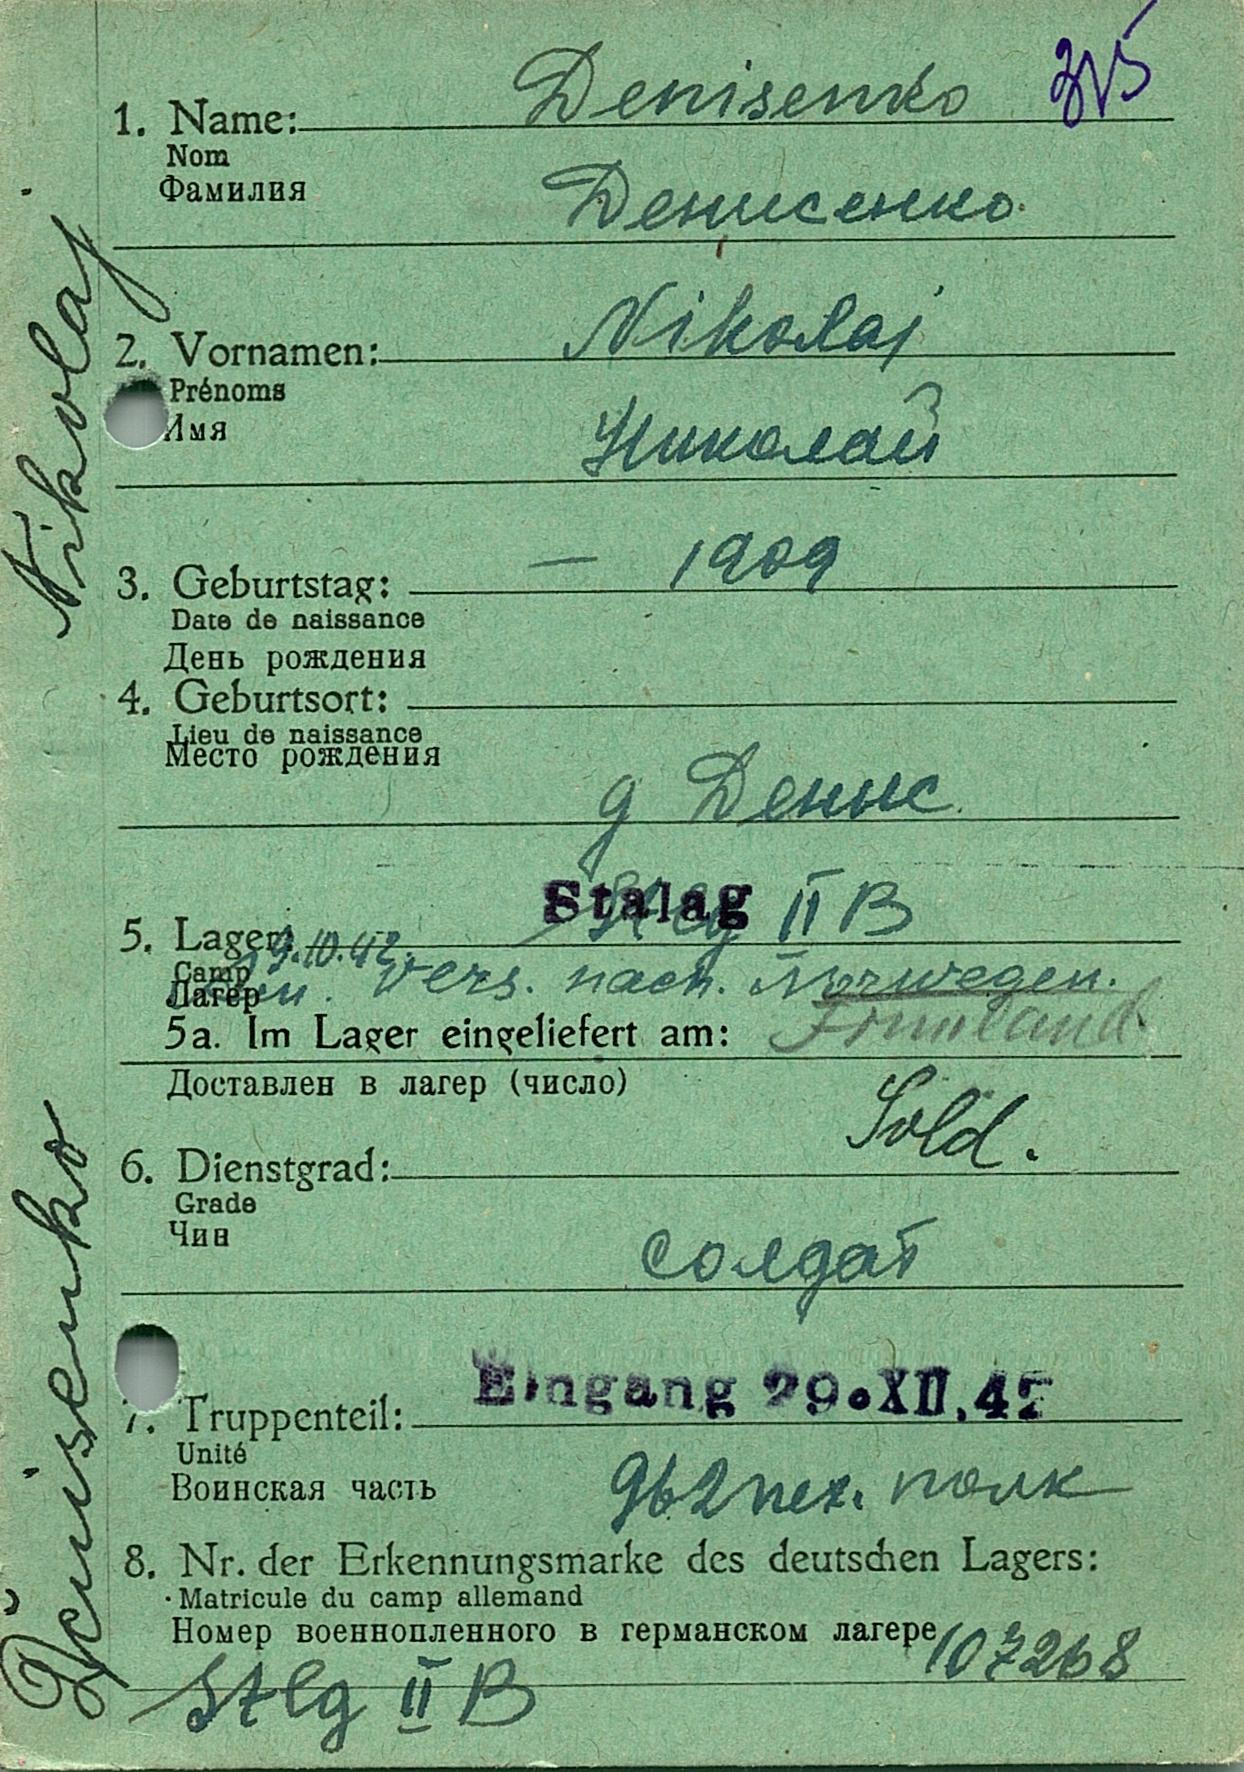 Denisenko
1. Name:
Nom
Фамилия
Денисенко
Nikolaj
2. Vornamen:
Prénoms
Имя
Николай
3. Geburtstag: — 1909
Date de naissance
День рождения
4. Geburtsort:
Lieu de naissance
Место рождения
д Денис
Stalag II B
5. Lager:
9.10.42.
Camp
Лагер
vers. nach. Norwegen.
Finnland
5a. Im Lager eingeliefert am:
Доставлен в лагер (число)
Sold.
6. Dienstgrad:
Grade
Чин
солдат
Eingang 29.XII.41
7. Truppenteil:
Unité
Воинская часть
962 пех. полк
8. Nr. der Erkennungsmarke des deutschen Lagers:
Matricule du camp allemand
Номер военнопленного в германском лагере 107268
Stlg II B
Denisenko Nikolaj